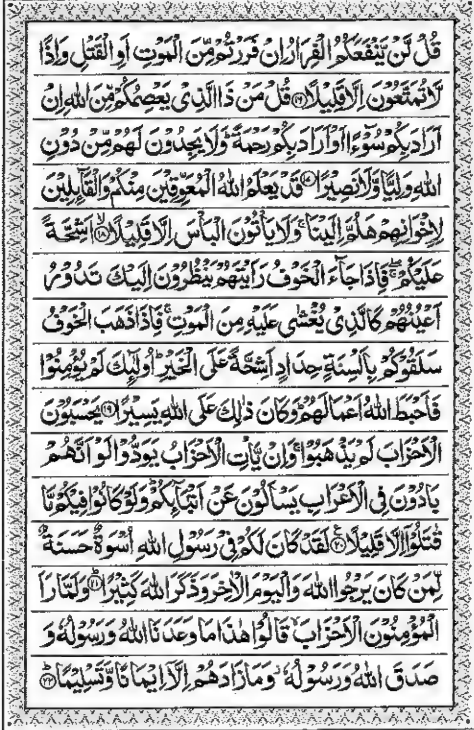 قُلْ لَّنْ يَّنْفَعَكُمُ الْفِرَارُ اِنْ فَرَرْتُمْ مِّنَ الْمَوْتِ اَوِ الْقَتْلِ وَاِذًا
لَّا تُمَتَّعُوْنَ اِلَّا قَلِيْلًا ﴿۱۶﴾ قُلْ مَنْ ذَا الَّذِىْ يَعْصِمُكُمْ مِّنَ اللّٰهِ اِنْ
اَرَادَ بِكُمْ سُوْٓءًا اَوْ اَرَادَ بِكُمْ رَحْمَةً ؕ وَلَا يَجِدُوْنَ لَهُمْ مِّنْ دُوْنِ
اللّٰهِ وَلِيًّا وَّلَا نَصِيْرًا ﴿۱۷﴾ قَدْ يَعْلَمُ اللّٰهُ الْمُعَوِّقِيْنَ مِنْكُمْ وَالْقَآئِلِيْنَ
لِاِخْوَانِهِمْ هَلُمَّ اِلَيْنَا ۚ وَلَا يَاْتُوْنَ الْبَاْسَ اِلَّا قَلِيْلًا ﴿۱۸﴾ اَشِحَّةً
عَلَيْكُمْ ۖ فَاِذَا جَآءَ الْخَوْفُ رَاَيْتَهُمْ يَنْظُرُوْنَ اِلَيْكَ تَدُوْرُ
اَعْيُنُهُمْ كَالَّذِىْ يُغْشٰى عَلَيْهِ مِنَ الْمَوْتِ ۚ فَاِذَا ذَهَبَ الْخَوْفُ
سَلَقُوْكُمْ بِاَلْسِنَةٍ حِدَادٍ اَشِحَّةً عَلَى الْخَيْرِ ؕ اُولٰٓئِكَ لَمْ يُؤْمِنُوْا
فَاَحْبَطَ اللّٰهُ اَعْمَالَهُمْ ؕ وَكَانَ ذٰلِكَ عَلَى اللّٰهِ يَسِيْرًا ﴿۱۹﴾ يَحْسَبُوْنَ
الْاَحْزَابَ لَمْ يَذْهَبُوْا ۚ وَاِنْ يَّاْتِ الْاَحْزَابُ يَوَدُّوْا لَوْ اَنَّهُمْ
بَادُوْنَ فِى الْاَعْرَابِ يَسْاَلُوْنَ عَنْ اَنْۢبَآئِكُمْ ؕ وَلَوْ كَانُوْا فِيْكُمْ مَّا
قٰتَلُوْٓا اِلَّا قَلِيْلًا ﴿۲۰﴾ لَقَدْ كَانَ لَكُمْ فِىْ رَسُوْلِ اللّٰهِ اُسْوَةٌ حَسَنَةٌ
لِّمَنْ كَانَ يَرْجُوا اللّٰهَ وَالْيَوْمَ الْاٰخِرَ وَذَكَرَ اللّٰهَ كَثِيْرًا ﴿۲۱﴾ وَلَمَّا رَاَ
الْمُؤْمِنُوْنَ الْاَحْزَابَ ۙ قَالُوْا هٰذَا مَا وَعَدَنَا اللّٰهُ وَرَسُوْلُهٗ وَ
صَدَقَ اللّٰهُ وَرَسُوْلُهٗ ؗ وَمَا زَادَهُمْ اِلَّآ اِيْمَانًا وَّتَسْلِيْمًا ﴿۲۲﴾